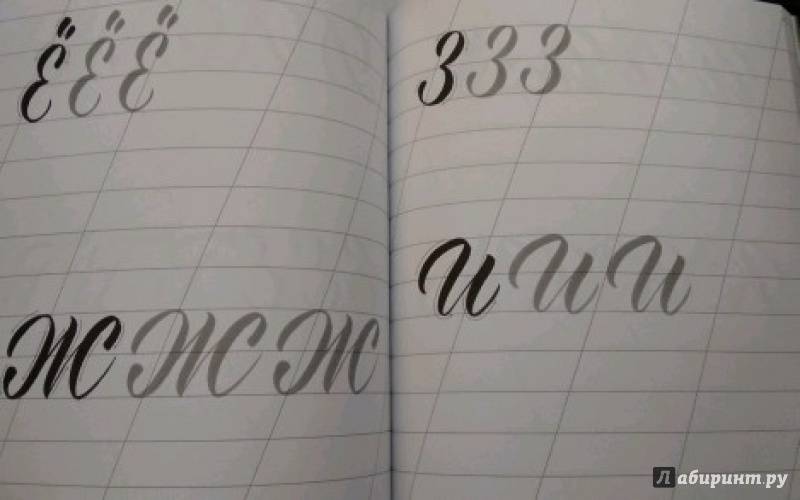 Ё Ё Ё
Ж Ж Ж
З З З
И И И
Лабиринт.ру